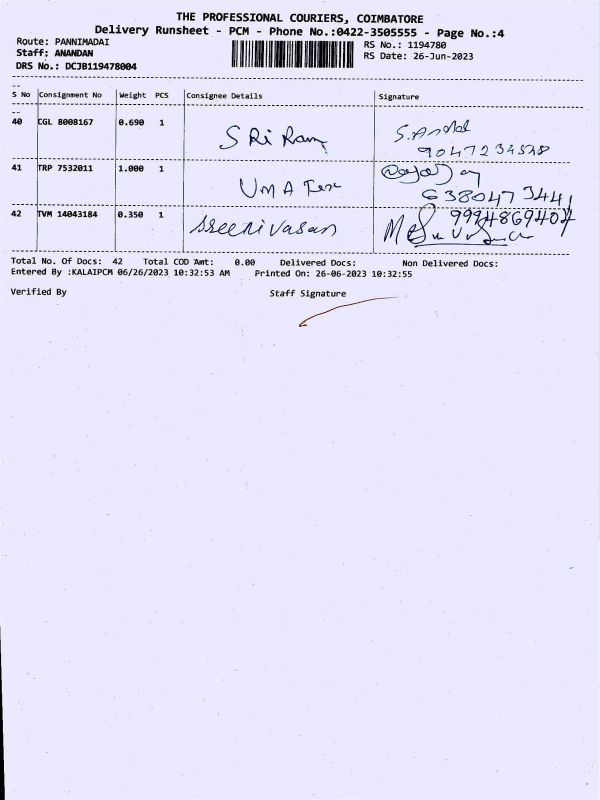 THE PROFESSIONAL COURIERS, COIMBATORE
Delivery Runsheet - PCM - Phone No.:0422-3505555 - Page No.:4
Route: PANNIMADAI
Staff: ANANDAN
DRS No.: DCJB119478004
RS No.: 1194780
RS Date: 26-Jun-2023
S No Consignment No Weight PCS Consignee Details Signature
40 CGL 8008167 0.690 1 SRi Ram
41 TRP 7532011 1.000 1 UMA
6380473441
42 TVM 14043184 0.350 1 Sreenivasan
9994869404
Total No. Of Docs: 42 Total COD Amt: 0.00 Delivered Docs: Non Delivered Docs:
Entered By :KALAIPCM 06/26/2023 10:32:53 AM Printed On: 26-06-2023 10:32:55
Verified By Staff Signature